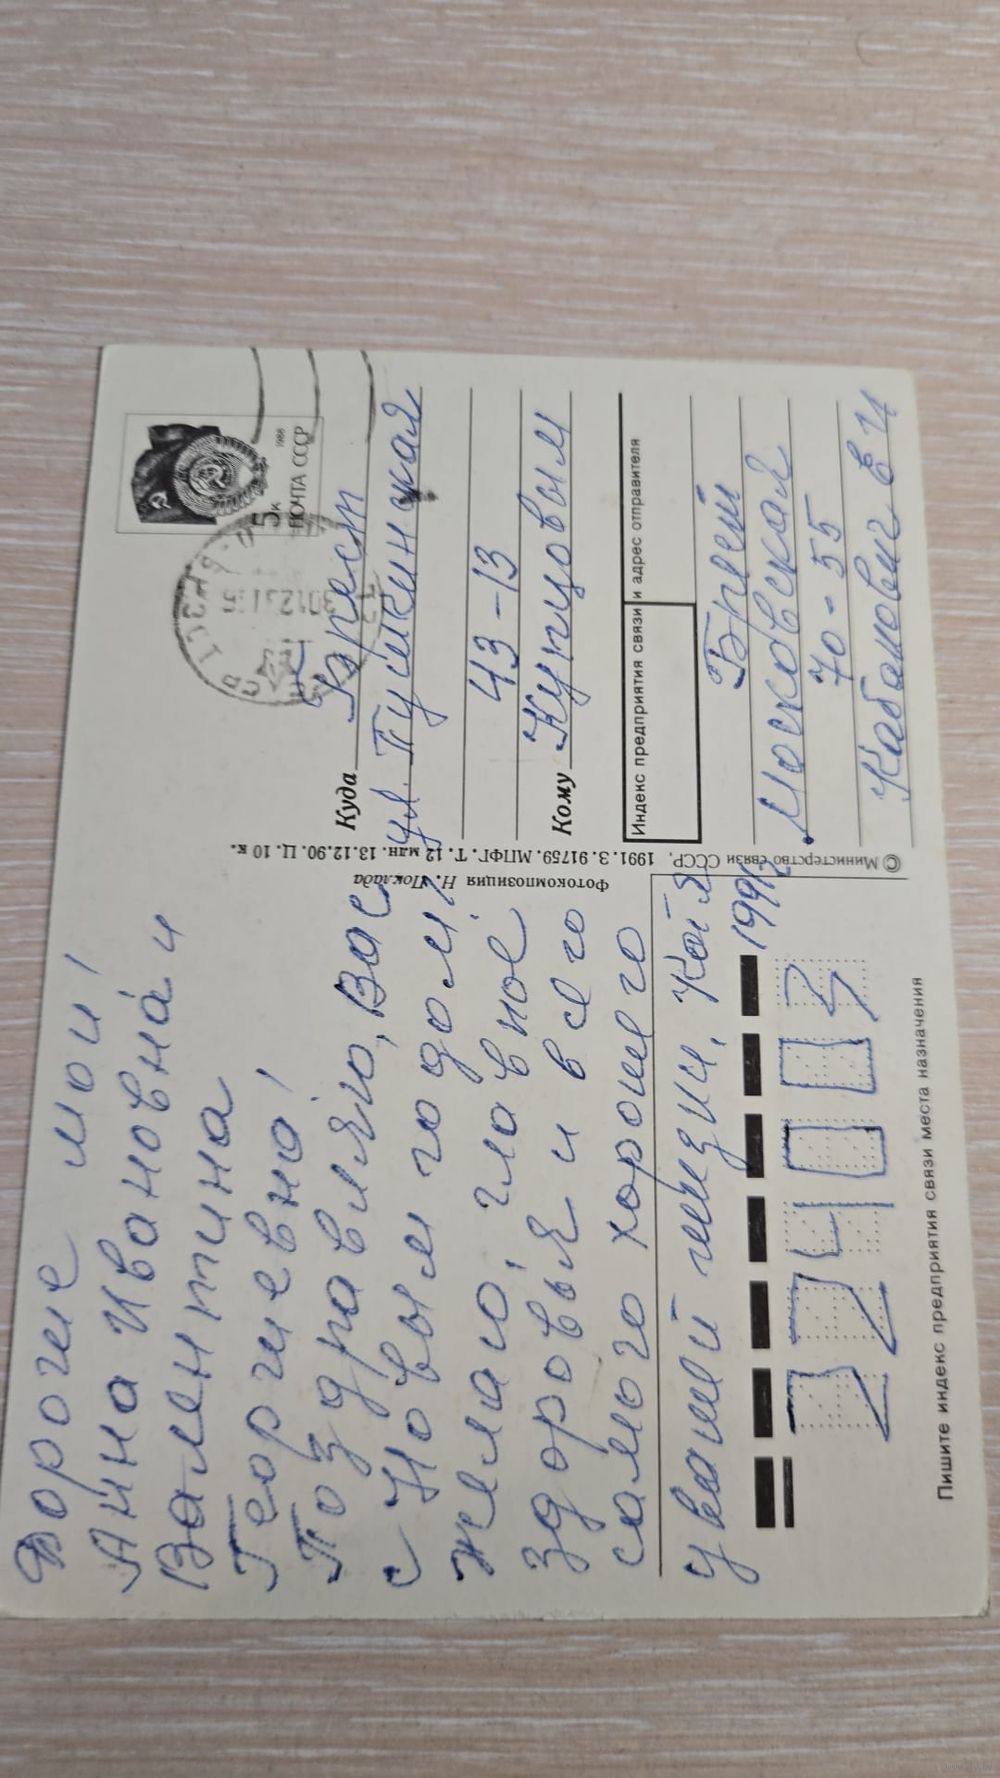 Дорогие мои!
Анна Ивановна и
Валентина
Георгиевна!
Поздравляю, Вас
с Новым годом!
Желаю, главное
здоровья и всего
самого хорошего
у вашей жизни. Катя
1992
5к
1988
ПОЧТА СССР
Куда
г. Брест
ул. Пушкинская
43-13
Кому Купцовым
Индекс предприятия связи и адрес отправителя
Брест
Московская
70-55
Кабакович Е И
Фотокомпозиция Н. Поклада
© Министерство связи СССР, 1991. З. 91759. МПФГ. Т. 12 млн. 13.12.90. Ц. 10 к.
224003
Пишите индекс предприятия связи места назначения